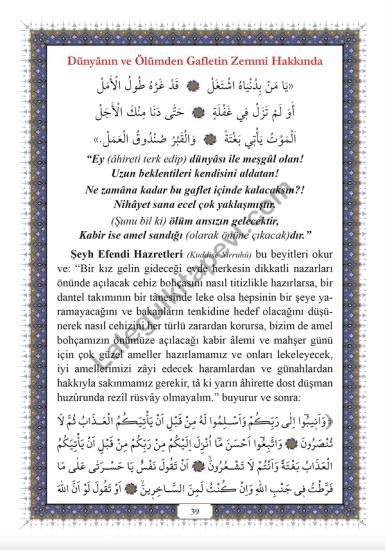 Dünyânın ve Ölümden Gafletin Zemmi Hakkında
«يَا مَنْ بِدُنْيَاهُ اشْتَغَلْ قَدْ غَرَّهُ طُولُ الْأَمَلْ
أَوَ لَمْ تَزَلْ فِي غَفْلَةٍ حَتَّى دَنَا مِنْكَ الْأَجَلْ
اَلْمَوْتُ يَأْتِي بَغْتَةً وَالْقَبْرُ صُنْدُوقُ الْعَمَلْ.»
“Ey (âhireti terk edip) dünyâsı ile meşgûl olan!
Uzun beklentileri kendisini aldatan!
Ne zamâna kadar bu gaflet içinde kalacaksın?!
Nihâyet sana ecel çok yaklaşmıştır.
(Şunu bil ki) ölüm ansızın gelecektir,
Kabir ise amel sandığı (olarak önüne çıkacak)dır.”
Şeyh Efendi Hazretleri (Kuddise Sirruhû) bu beyitleri okur
ve: “Bir kız gelin gideceği evde herkesin dikkatli nazarları
önünde açılacak cehiz bohçasını nasıl titizlikle hazırlarsa, bir
dantel takımının bir tânesinde leke olsa hepsinin bir şeye ya-
ramayacağını ve bakanların tenkidine hedef olacağını düşü-
nerek nasıl cehizini her türlü zarardan korursa, bizim de amel
bohçamızın önümüze açılacağı kabir âlemi ve mahşer günü
için çok güzel ameller hazırlamamız ve onları lekeleyecek,
iyi amellerimizi zâyi edecek haramlardan ve günâhlardan
hakkıyla sakınmamız gerekir, tâ ki yarın âhirette dost düşman
huzûrunda rezîl rüsvây olmayalım.” buyurur ve sonra:
﴿وَاَنِيبُوا اِلٰى رَبِّكُمْ وَاَسْلِمُوا لَهُ مِنْ قَبْلِ اَنْ يَأْتِيَكُمُ الْعَذَابُ ثُمَّ لَا
تُنْصَرُونَ وَاتَّبِعُوا اَحْسَنَ مَا اُنْزِلَ اِلَيْكُمْ مِنْ رَبِّكُمْ مِنْ قَبْلِ اَنْ يَأْتِيَكُمُ
الْعَذَابُ بَغْتَةً وَاَنْتُمْ لَا تَشْعُرُونَ اَنْ تَقُولَ نَفْسٌ يَا حَسْرَتٰى عَلٰى مَا
فَرَّطْتُ فِي جَنْبِ اللّٰهِ وَاِنْ كُنْتُ لَمِنَ السَّاخِرِينَ اَوْ تَقُولَ لَوْ اَنَّ اللّٰهَ
39